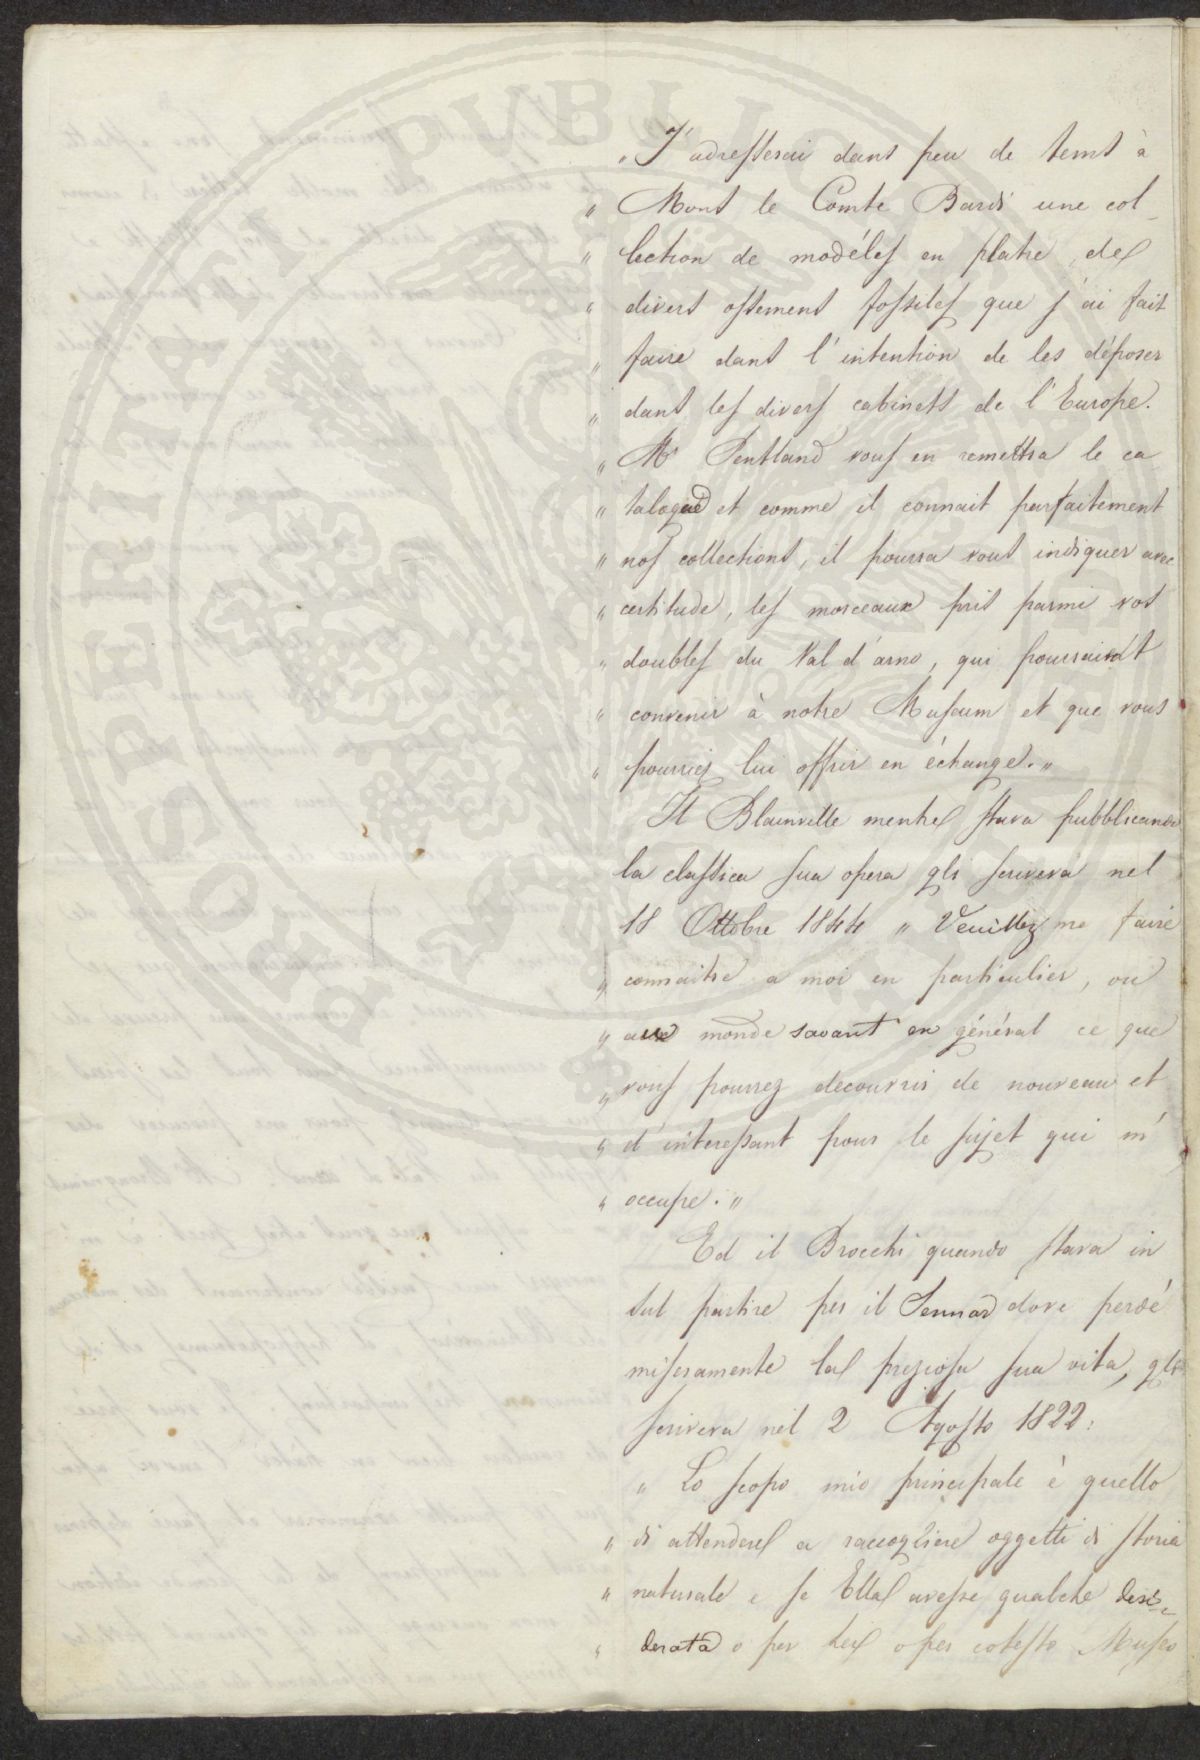 „ J'adresserai dans peu de tems à
„ Mons le Comte Bardi une col-
„ lection de modéles en platre, des
„ divers ossemens fossiles que j'ai fait
„ faire dans l'intention de les déposer
„ dans les divers cabinets de l'Europe.
„ Mr Pentland vous en remettra le ca
„ talogue et comme il connait parfaitement
„ nos collections, il pourra vous indiquer avec
„ certitude, les morceaux pris parmi vos
„ doubles du Val d'arno, qui pourraient
„ convenir à notre Museum et que vous
„ pourriez lui offrir en échange. „
Il Blainville mentre stava pubblicando
la classica sua opera gli scriveva nel
18 Ottobre 1844 „ Veuillez me faire
„ connaitre a moi en particulier, ou
„ aux monde savant en général ce que
„ vous pourrez decouvrir de nouveau et
„ d'interessant pour le sujet qui m'
„ occupe. „
Ed il Brocchi quando stava in
sul partire per il Sennar dove perdé
miseramente la preziosa sua vita, gli
scriveva nel 2 Agosto 1822:
„ Lo scopo mio principale è quello
„ di attendere a raccogliere oggetti di storia
„ naturale e se Ella avesse qualche desi-
„ derata o per lei o per cotesto Museo
PROSPERITÀ PUBLICA